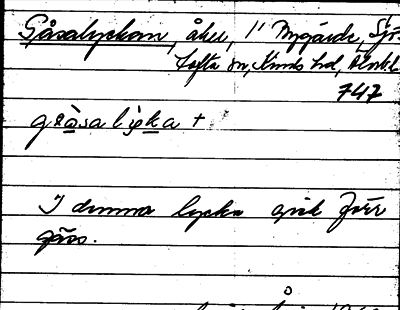 Gåsalyckan, åker, 1' Nygärde, Sjö-
tofta sn, Kinds hd, Älvsb
747
gåsalyka +
I denna lycka gick förr
gäss.